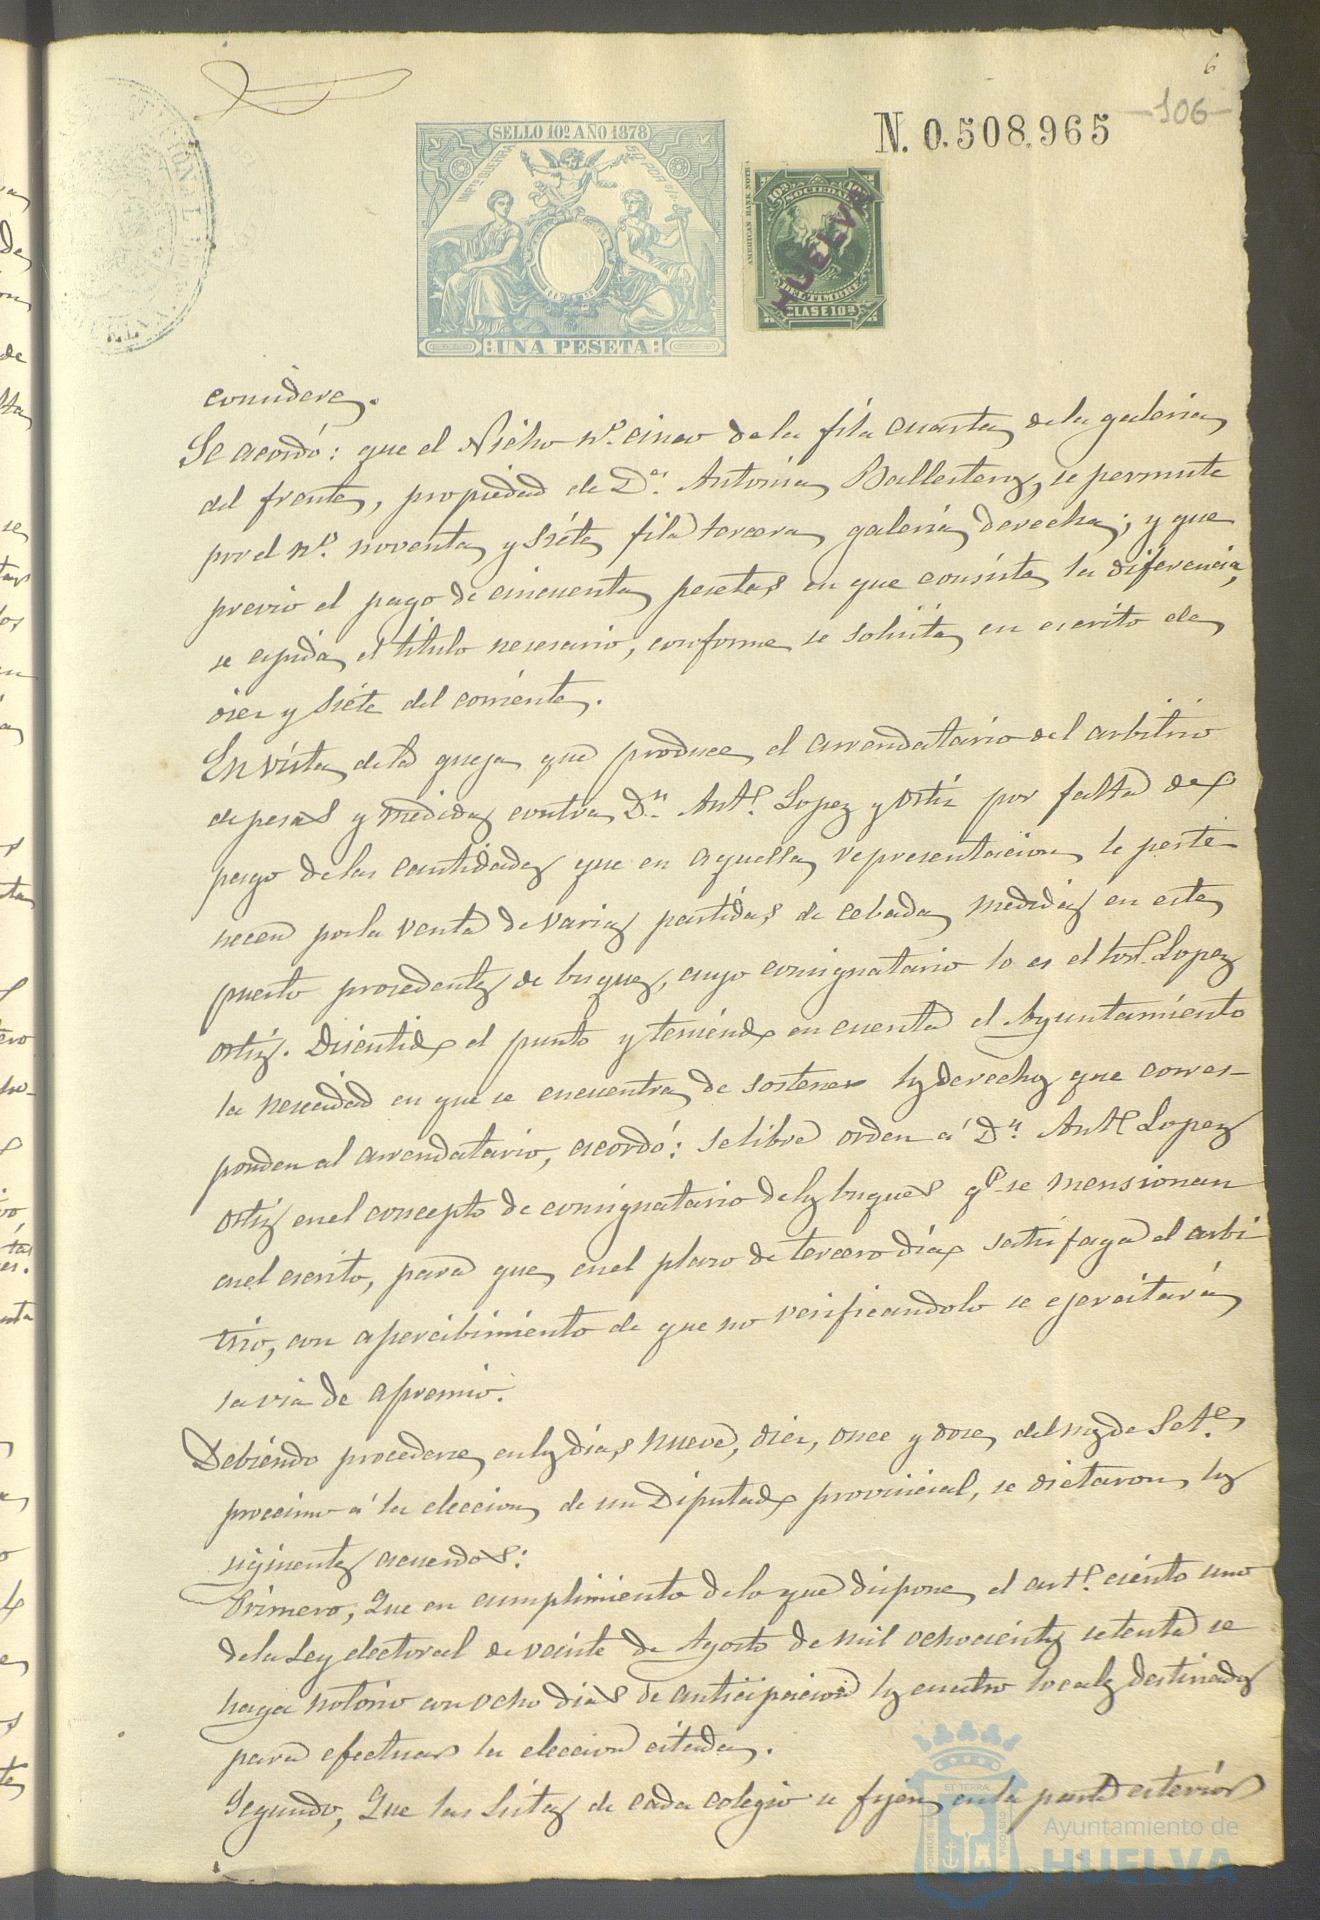 6
-106-
N. 0.508,965
SELLO 10º AÑO 1878
UNA PESETA
AMERICAN BANK NOTE
10ª SOCIEDAD 10ª
DEL TIMBRE
CLASE 10ª
HUELVA
considere.
Se acordó: que el Nicho nº. cinco de la fila cuarta de la galeria
del frente, propiedad de Dª. Antonia Ballesteros, se permute
por el nº. noventa y siete fila tercera galeria derecha; y que
previo el pago de cincuenta pesetas en que consiste la diferencia,
se expida el titulo nesesario, conforme se solicita en escrito de
diez y siete del corriente.
En vista de la queja que produce el arrendatario del arbitrio
de pesas y medidas contra Dn. Antº. Lopez y Ortiz por falta de
pago de las cantidades que en aquella representacion le perte
necen por la venta de varias partidas de cebada medidas en este
puerto prosedentes de buques, cuyo consignatario lo es el Lopez
Ortiz. Discutido el punto y teniendo en cuenta el Ayuntamiento
la nesecidad en que se encuentra de sostener los derechos que corres-
ponden al arrendatario, acordó: se libre orden á Dn. Antº Lopez
Ortiz en el concepto de consignatario de los buques qe. se mensionan
en el escrito, para que en el plazo de tercero dia satisfaga el arbi
trio, con apercibimiento de que no verificandolo se ejercitará
la via de apremio.
Debiendo procederse en los dias nueve, diez, once y doce del mes de Sete.
procsimo á la eleccion de un Diputado provincial, se dictaron los
siguientes acuerdos:
Primero, Que en cumplimiento de lo que dispone el artº. ciento uno
de la Ley electoral de veinte de Agosto de mil ochocientos setenta se
haga notorio con ocho dias de anticipacion los cuatro locales destinados
para efectuar la eleccion citada.
Segundo, Que las listas de cada colegio se fijen en la parte esterior
Ayuntamiento de
HUELVA